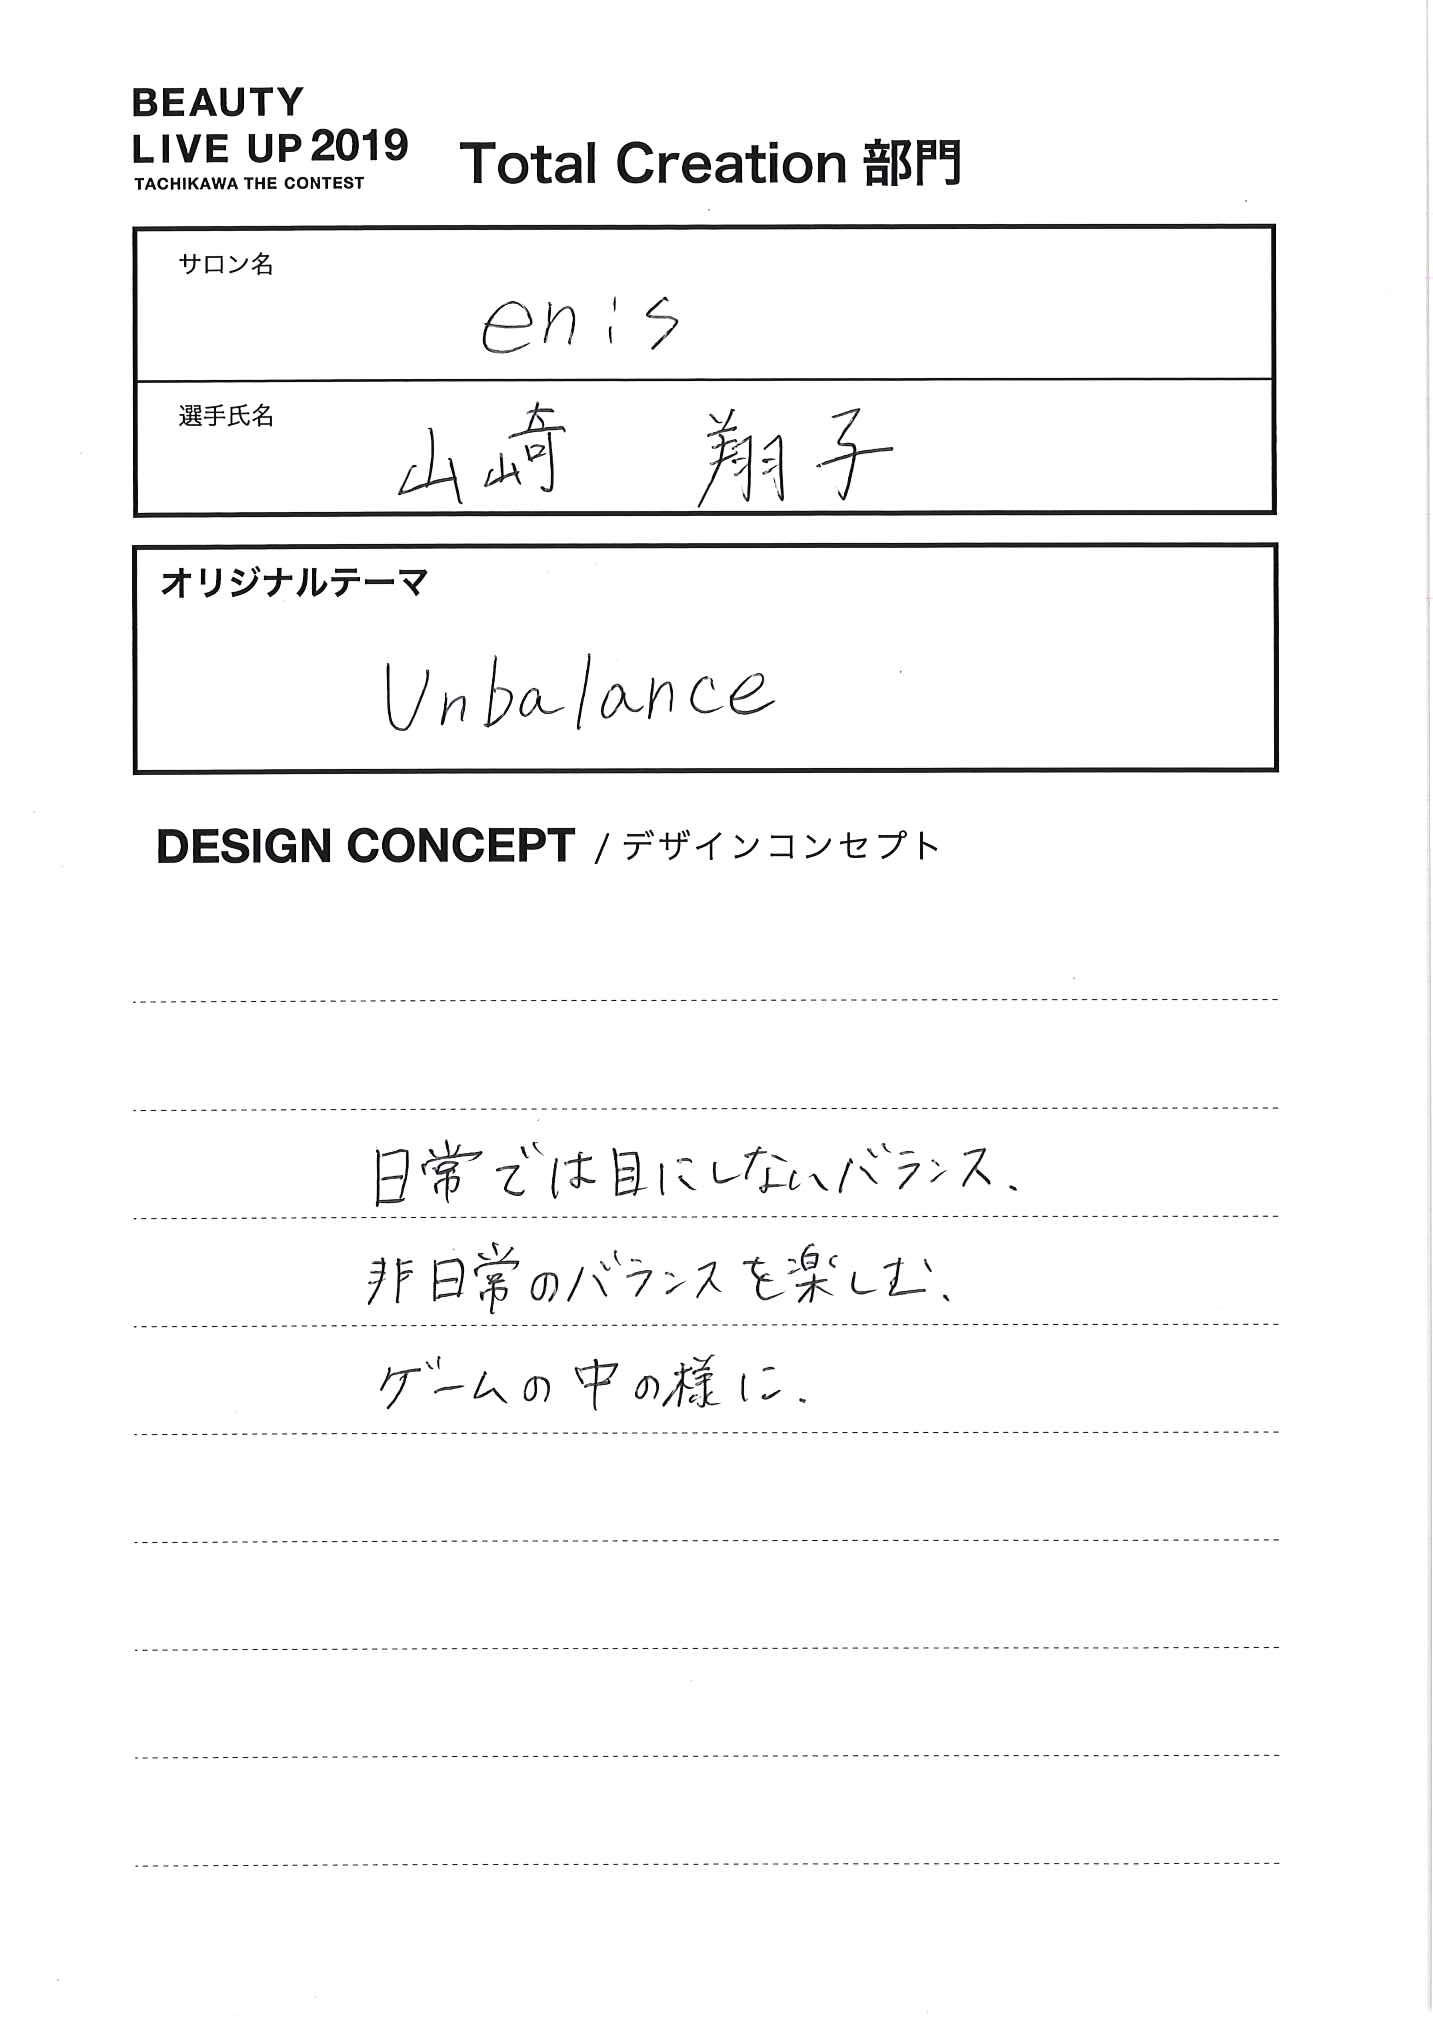 BEAUTY
LIVE UP 2019
TACHIKAWA THE CONTEST
Total Creation 部門
サロン名
enis
選手氏名
山崎 翔子
オリジナルテーマ
Unbalance
DESIGN CONCEPT / デザインコンセプト
日常では目にしないバランス、
非日常のバランスを楽しむ、
ゲームの中の様に.